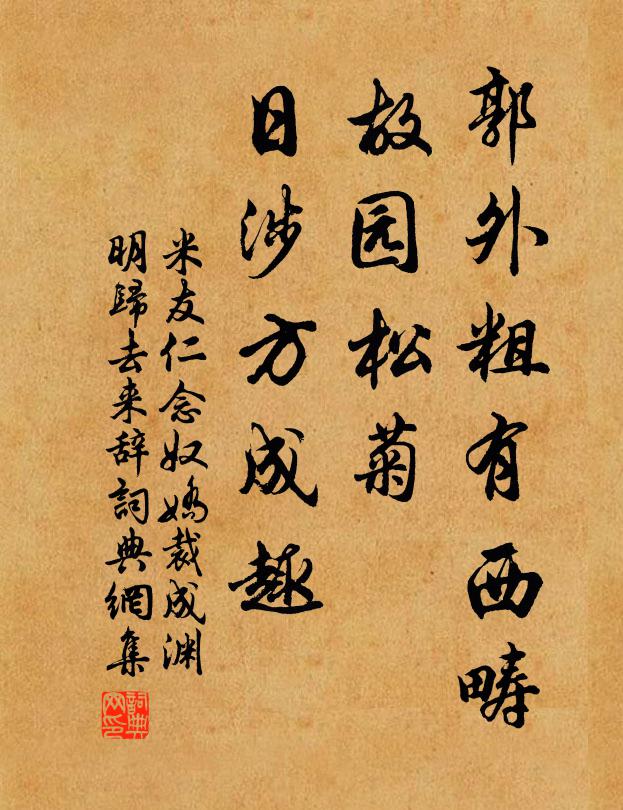 郭外粗有西畴
故园松菊
日涉方成趣
米友仁念奴娇裁成渊
明歸去来辞詞典網集
詞典网印